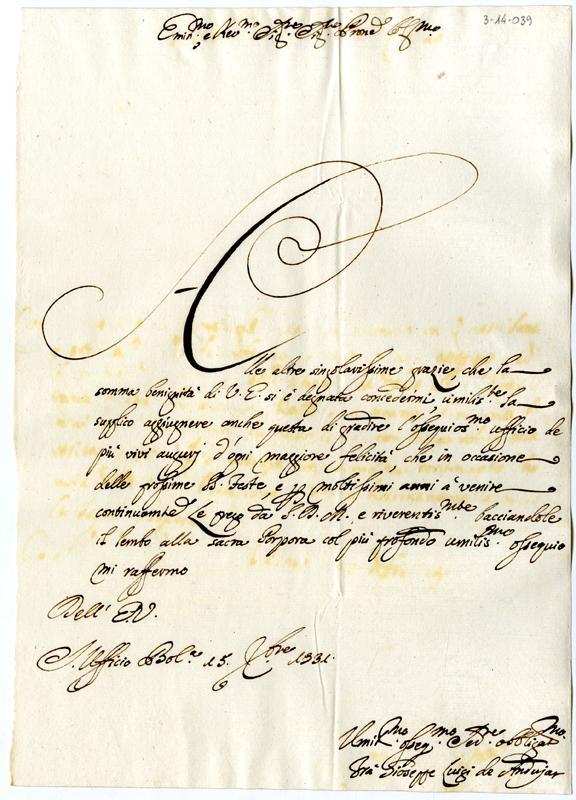 3-14-039
Emin.mo e Rev.mo Sig.re Sig.re Pron.e Oss.mo
Alle altre singolarissime grazie, che la
somma benignità di V. E. si è degnata concedermi, umilis.te la
supplico aggiugnere anche questa di gradire l'ossequios.mo ufficio de
più vivi augurj d'ogni maggiore felicità, che in occasione
delle prossime S. Feste, e per moltissimi anni à venire
continuamte le prego da S. D. M. e riverentis.mte bacciandole
il lembo alla sacra Porpora col più profondo umilis.mo ossequio
mi raffermo
Dell' E.V.
S. Ufficio Bol.a 15. Xbre 1731.
Umil.mo osseq.mo Ser.re obbligat.mo
Fra Gioseppe Luigi de Andujar